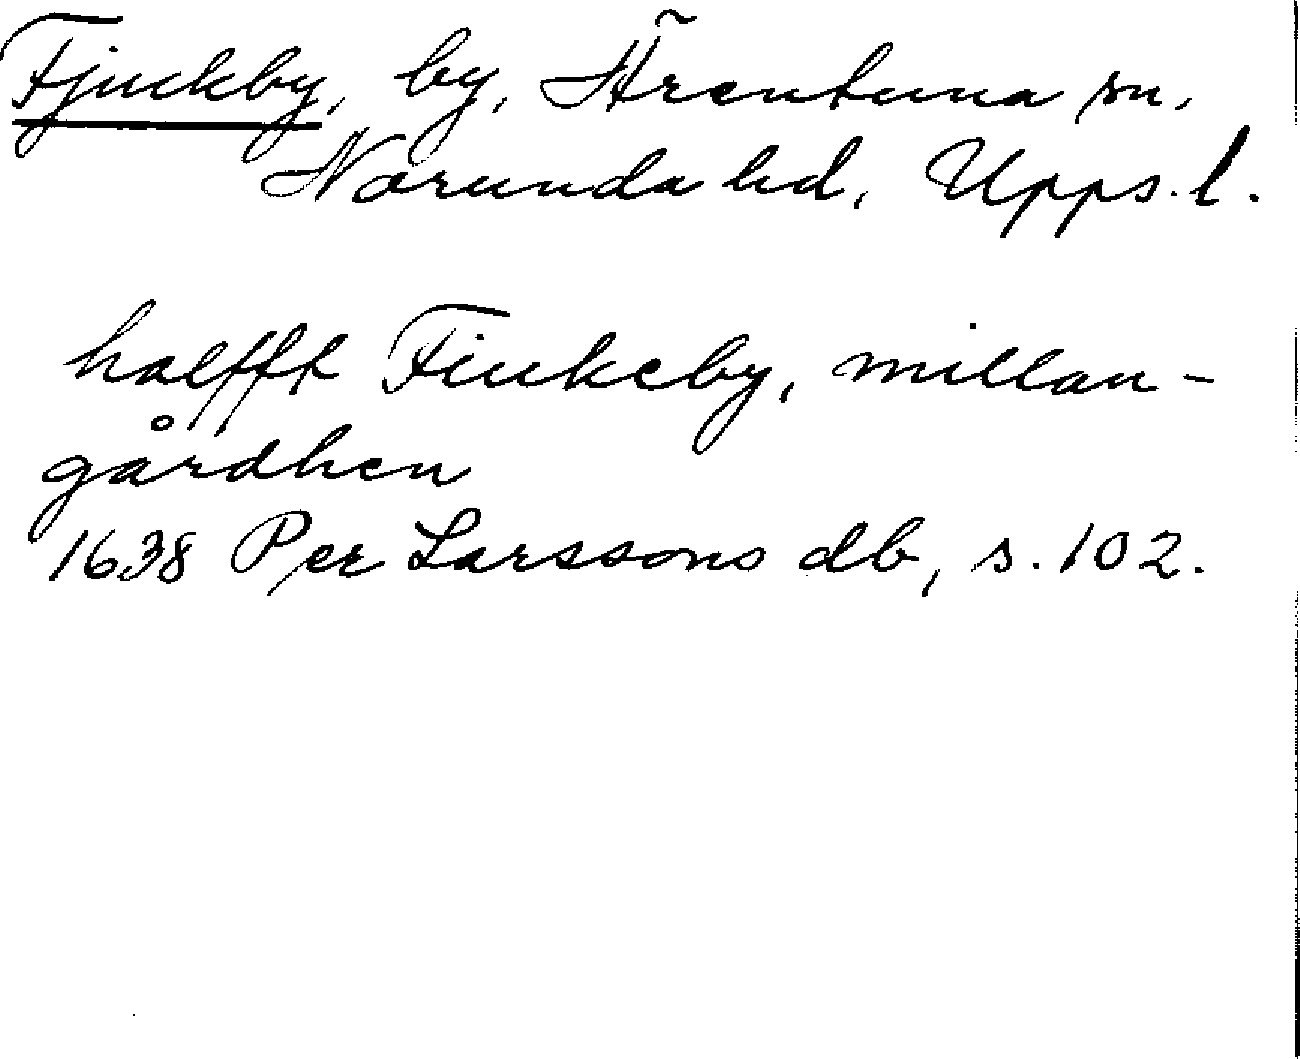 Fjuckby, by, Ärentuna sn.
Norunda hd, Upps. l.
halfft Fiukeby, millan-
gårdhen
1638 Per Larssons db, s. 102.